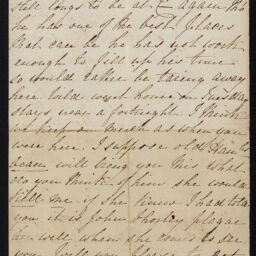 still longs to be at C again tho
he has one of the best places
that can be he has not work
enough to fill up his time
so would rather be taring away
here Will went home on Tuesday
stays near a fortnight. I think
we keep as much as when you
were here. I suppose old Han
beau will bring you this what
do you think of him she would
kill me if she knew I had told
you it is John plague
her well when she comes to see
you